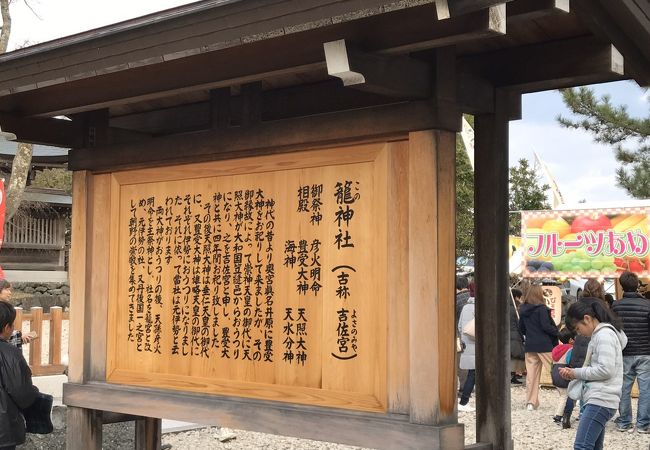 籠神社（古称 吉佐宮）
この
よさのみや
御祭神 彦火明命
相殿 豊受大神 天照大神
海神 天水分神
神代の昔より奥宮眞名井原に豊受
大神をお祀りして来ましたが、その
御縁故によって崇神天皇の御代に天
照大神が大和国笠縫邑からおうつり
になり、之を吉佐宮と申し、豊受大
神と共に四年間お祀り致しました。
その後天照大神は垂仁天皇の御代
に、又豊受大神は雄略天皇の御代に
それぞれ伊勢におうつりになりまし
た。それに依って當社は元伊勢と云
われております。
両大神がおうつりの後、天孫彦火
明命を主祭神とし、社名を籠宮と改
め、元伊勢の社、又丹後国一之宮と
して朝野の崇敬を集めてきました
フルーツあめ